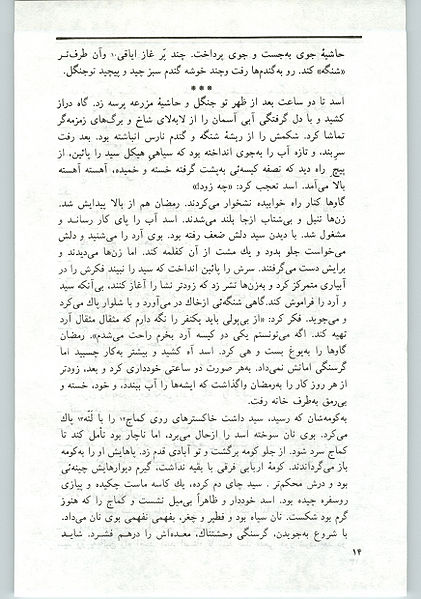 حاشیهٔ جوی به‌جست و جوی پرداخت. چند پر غاز ایاقی۱۰ وآن طرف‌تر
«شنگه» کند. رو به‌گندم‌ها رفت وچند خوشه گندم سبز چید و پیچید توجنگل.
***
اسد تا دو ساعت بعد از ظهر تو جنگل و حاشیهٔ مزرعه پرسه زد. گاه دراز
کشید و با دل گرفتگی آبی آسمان را از لابه‌لای شاخ و برگ‌های زمزمه‌گر
تماشا کرد. شکمش را از ریشهٔ شنگه و گندم نارس انباشته بود. بعد رفت
سربند. و تازه آب را به‌جوی انداخته بود که سیاهی هیکل سید را پائین، از
پیچ راه دید که نصفه کیسه‌ئی به‌پشت گرفته خسته و خمیده، آهسته آهسته
بالا می‌آمد. اسد تعجب کرد: «چه زود!»
گاوها کنار راه خوابیده نشخوار می‌کردند. رمضان هم از بالا پیدایش شد.
زن‌ها تنبل و بی‌شتاب ازجا بلند می‌شدند. اسد آب را پای کار رسانـد و
مشغول شد. با دیدن سید دلش ضعف رفته بود. بوی آرد را می‌شنید و دلش
می‌خواست جلو بدود و یك مشت از آن کفلمه کند. اما زن‌ها می‌دیدند و
برایش دست می‌گرفتند. سرش را پائین انداخت که سید را نبیند فکرش را در
آبیاری متمرکز کرد و به‌زن‌ها تشر زد که زودتر نشا را آغاز کنند، بی‌آنکه سید
و آرد را فراموش کند. گاهی شنگه‌ئی ازخاك در می‌آورد و با شلوار پاك می‌کرد
و می‌جوید. فکر کرد: «از بی‌پولی باید یکنفر را نگه دارم که مثقال مثقال آرد
تهیه کند. اگه می‌تونستم یکی دو کیسه آرد بخرم راحت می‌شدم». رمضان
گاوها را به‌یوغ بست و هی کرد. اسد آه کشید و بیشتر به‌کار چسبید اما
گرسنگی امانش نمی‌داد. به‌هر صورت دو ساعتی خودداری کرد و بعد، زودتر
از هر روز کار را به‌رمضان واگذاشت که ایشه‌ها را آب ببندد، و خود، خسته و
بی‌رمق به‌طرف خانه رفت.
به‌کومه‌شان که رسید، سید داشت خاکسترهای روی کماج۱۲ را با لَتّه۱۳ پاك
می‌کرد. بوی نان سوخته اسد را ازحال می‌برد، اما ناچار بود تأمل کند تا
کماج سرد شود. از جلو کومه برگشت و تو آبادی قدم زد. پاهایش او را به‌کومه
باز می‌گرداندند. کومهٔ اربابی فرقی با بقیه نداشت، گیرم دیوارهایش چینه‌ئی
بود و درش محکم‌تر. سید چای دم کرده، یك کاسه ماست چکیده و پیازی
روسفره چیده بود. اسد خوددار و ظاهراً بی‌میل نشست و کماج را که هنوز
گرم بود شکست. نان سیاه بود و فطیر و چغر، بفهمی نفهمی بوی نان می‌داد.
با شروع به‌جویدن، گرسنگی وحشتناك، معده‌اش را درهـم فشـرد. شایـد
۱۴